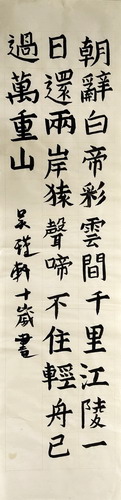 朝辭白帝彩雲間千里江陵一
日還兩岸猿聲啼不住輕舟已
過萬重山
吴雅軒十歲書